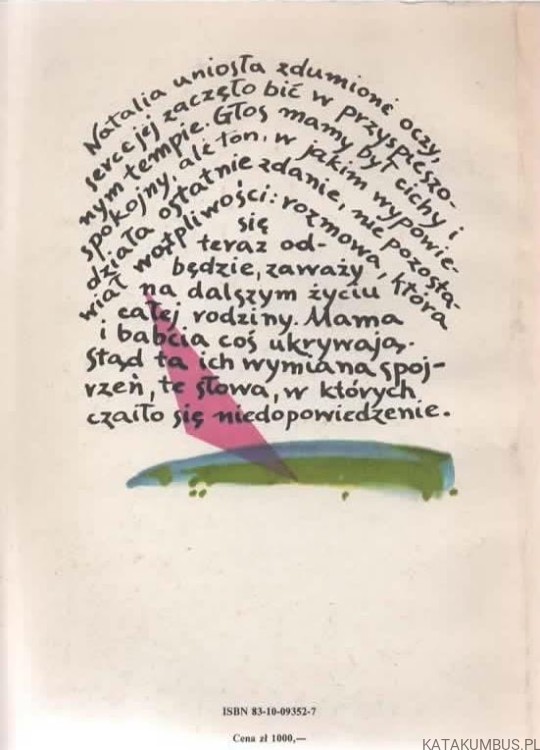 Natalia uniosła zdumione oczy,
serce jej zaczęło bić w przyspieszo-
nym tempie. Głos mamy był cichy i
spokojny, ale ton, w jakim wypowie-
działa ostatnie zdanie, nie pozosta-
wiał wątpliwości: rozmowa, która
się
teraz od-
będzie, zaważy
na dalszym życiu
całej rodziny. Mama
i babcia coś ukrywają.
Stąd ta ich wymiana spoj-
rzeń, te słowa, w których
czaiło się niedopowiedzenie.
ISBN 83-10-09352-7
Cena zł 1000,—
KATAKUMBUS.PL